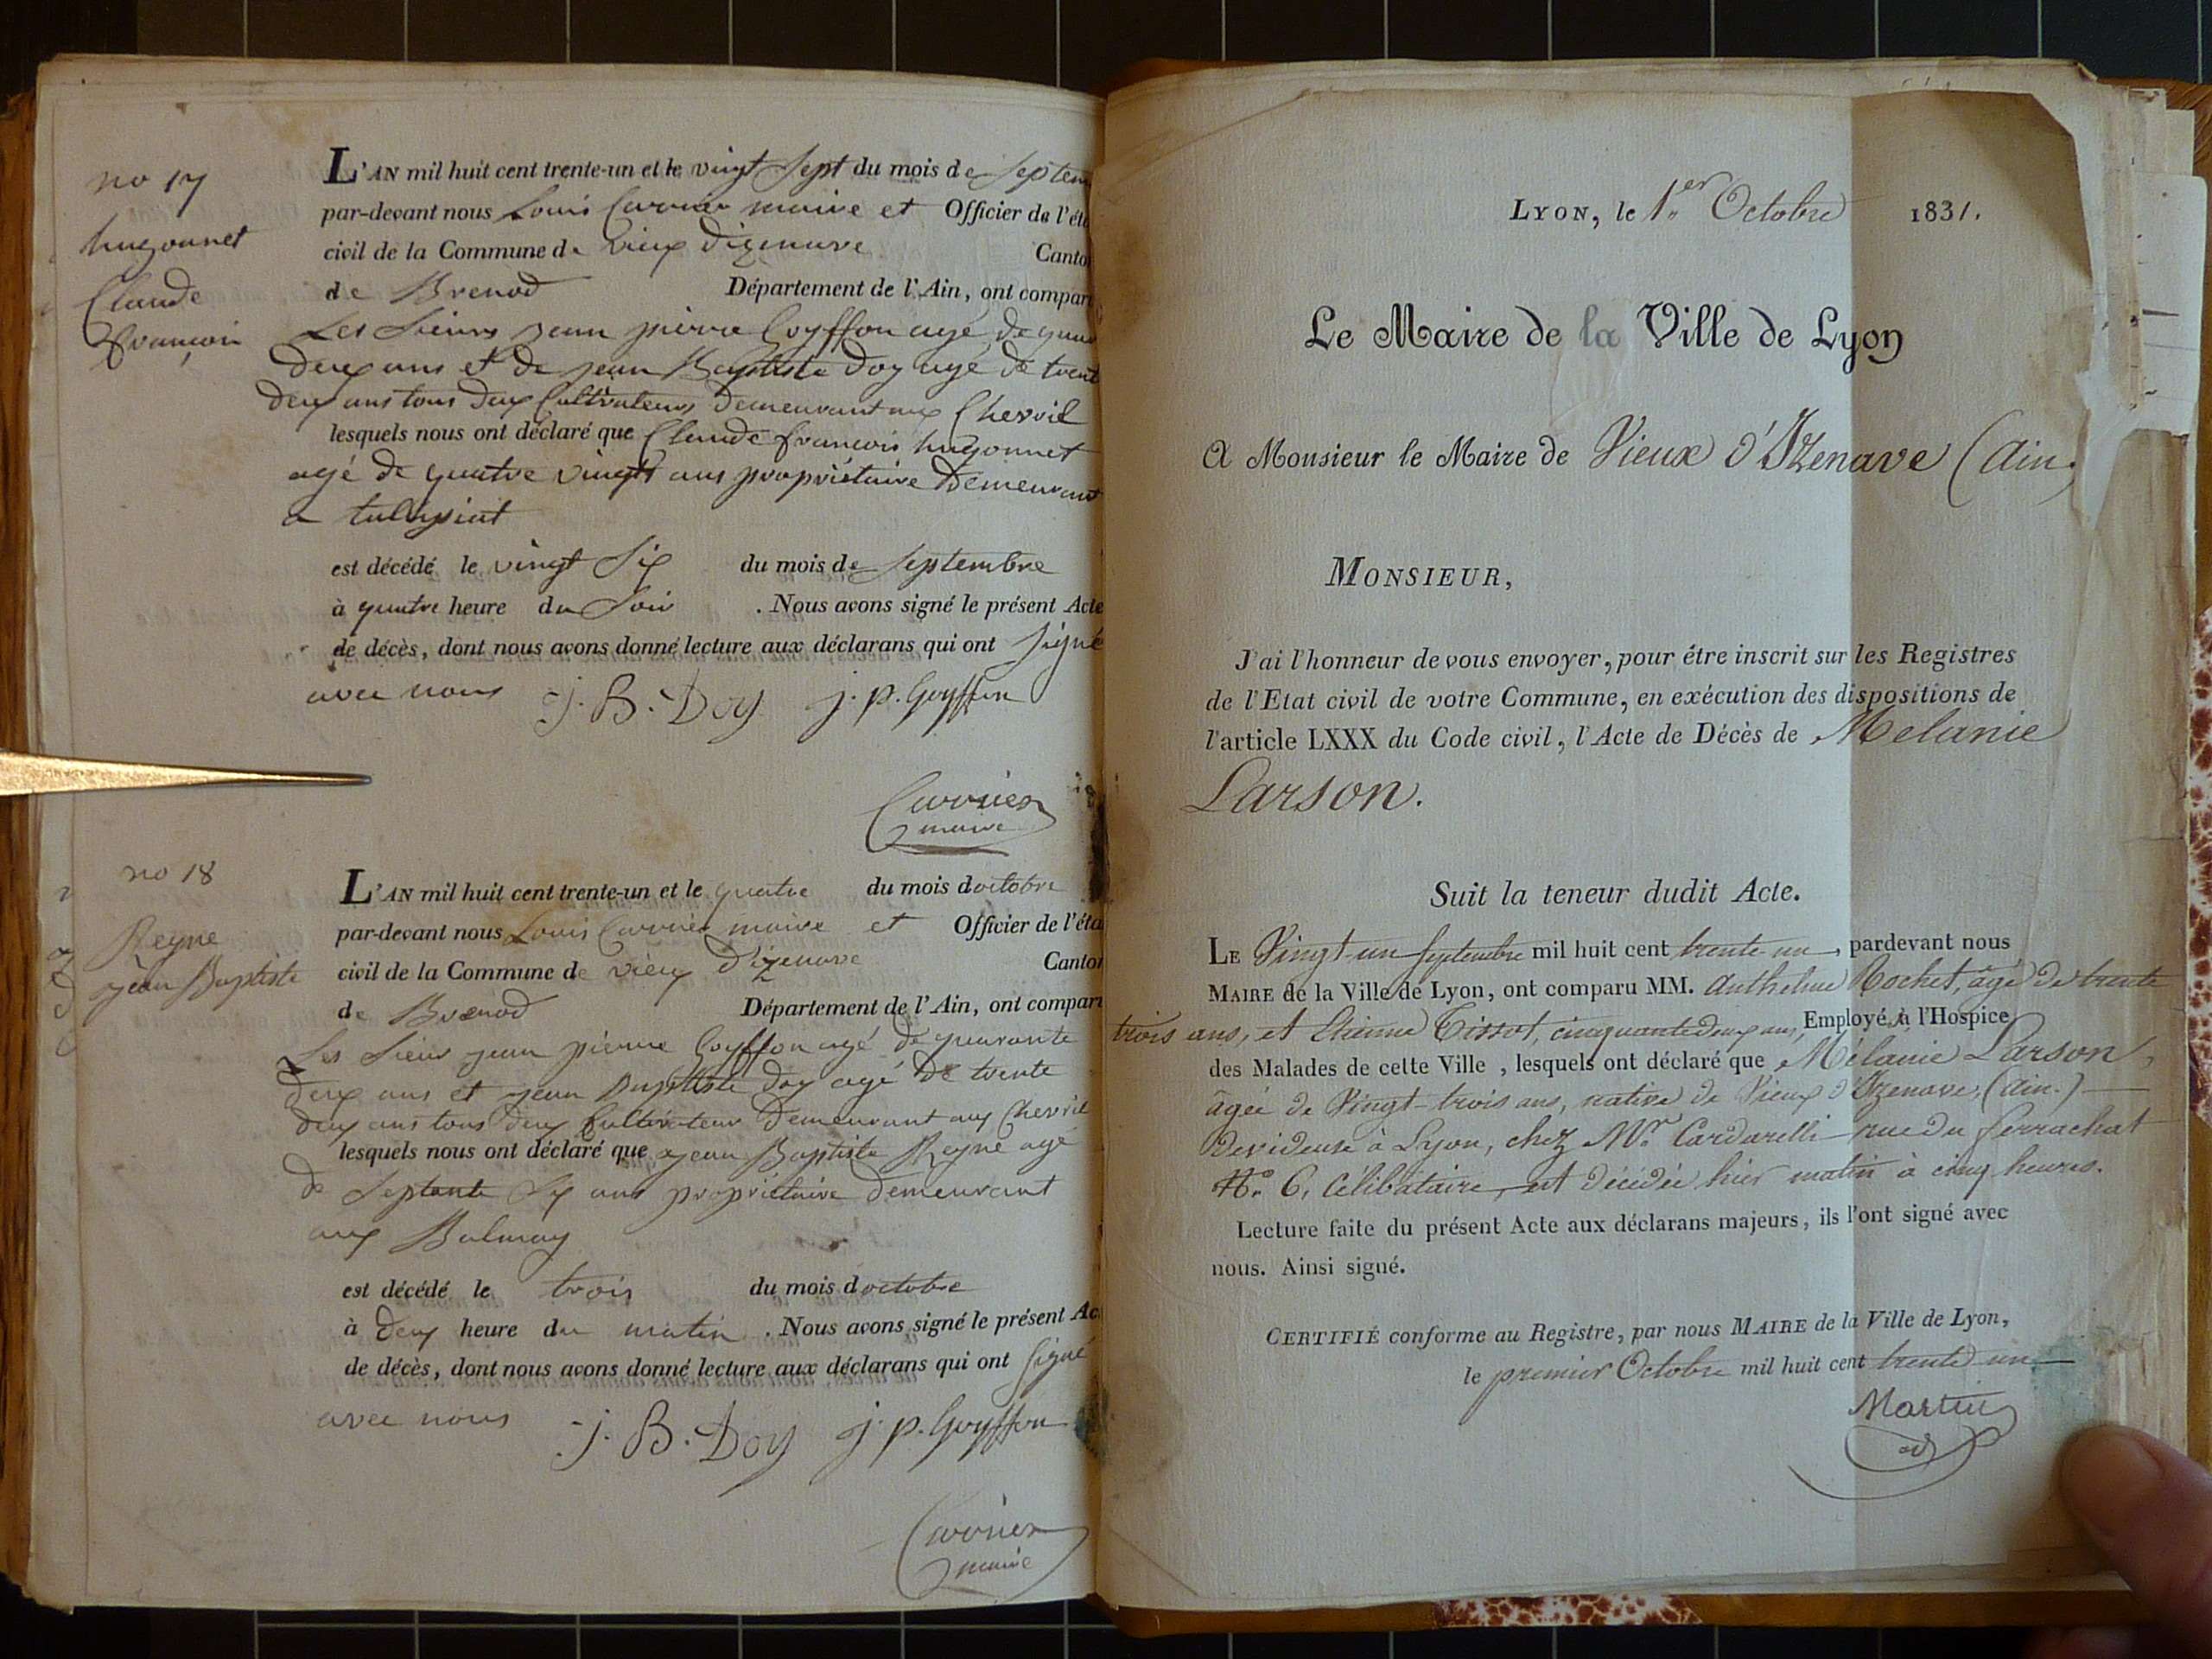 no 17
hugonnet
Claude
françois
L'AN mil huit cent trente-un et le vingt Sept du mois de Septem
par-devant nous Louis Carrier maire et Officier de l'éta
civil de la Commune de vieux dizenave Canton
de Brenod Département de l'Ain, ont compar
Les Sieurs jean pierre Goyffon agé de quar
deux ans et de jean Baptiste Doy agé de trent
deux ans tous deux Cultivateurs demeurant aux Chevril
lesquels nous ont déclaré que Claude françois hugonnet
agé de quatre vingts ans propriétaire demeurant
a
est décédé le vingt Six du mois de Septembre
à quatre heure du Soir . Nous avons signé le présent Acte
de décès, dont nous avons donné lecture aux déclarans qui ont Signé
avec nous J. B. Doy j. p. Goyffon
Carrier
maire
no 18
Reyne
jean Baptiste
L'AN mil huit cent trente-un et le quatre du mois doctobre
par-devant nous Louis Carrier maire et Officier de l'éta
civil de la Commune de vieux Dizenave Canton
de Brenod Département de l'Ain, ont compar
Les Sieurs jean pierre Goyffon agé de quarante
deux ans et jean Baptiste doy agé de trente
deux ans tous deux Cultivateur demeurant aux Chevril
lesquels nous ont déclaré que jean Baptiste Reyne agé
de Septante Six ans propriétaire demeurant
aux Balmay
est décédé le trois du mois doctobre
à deux heure du matin . Nous avons signé le présent Ac
de décès, dont nous avons donné lecture aux déclarans qui ont Signé
avec nous J. B. Doy j. p. Goyffon
Carrier
maire
LYON, le 1.er Octobre 1831.
Le Maire de la Ville de Lyon
A Monsieur le Maire de Vieux d'Izenave (Ain)
MONSIEUR,
J'ai l'honneur de vous envoyer, pour être inscrit sur les Registres
de l'Etat civil de votre Commune, en exécution des dispositions de
l'article LXXX du Code civil, l'Acte de Décès de Melanie
Larson.
Suit la teneur dudit Acte.
LE Vingt-un Septembre mil huit cent trente-un, pardevant nous
MAIRE de la Ville de Lyon, ont comparu MM. Anthelme Rochet, âgé de trente
trois ans, et Etienne Tissot, cinquante deux ans, Employé à l'Hospice
des Malades de cette Ville , lesquels ont déclaré que Mélanie Larson,
âgée de Vingt-trois ans, native de Vieux d'Izenave, (Ain.)
Devideuse à Lyon, chez Mr. Cardarelli rue du ferrachat
No. 6, Célibataire, est décédée hier matin à cinq heures.
Lecture faite du présent Acte aux déclarans majeurs, ils l'ont signé avec
nous. Ainsi signé.
CERTIFIÉ conforme au Registre, par nous MAIRE de la Ville de Lyon,
le premier Octobre mil huit cent trente un
Martin